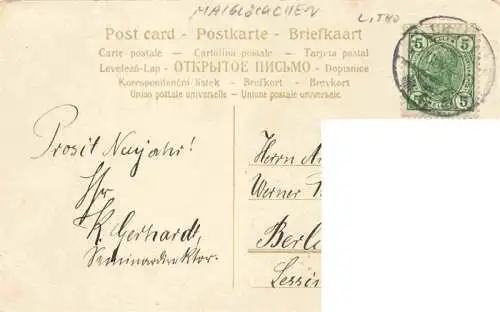 MAIGLÖCKCHEN
LITHO
Post card - Postkarte - Briefkaart
Carte postale — Cartolina postale — Tarjeta postal
Levelező-Lap - ОТКРЫТОЕ ПИСЬМО - Dopisnice
Korrespondenční lístek - Brefkort - Brevkort
Union postale universelle - Unione postale universale.
5 5
5 5
Prosit Neujahr!
Ihr
K. Gerhardt,
Seminardirektor.
Herrn
Werner
Berl
Lessin